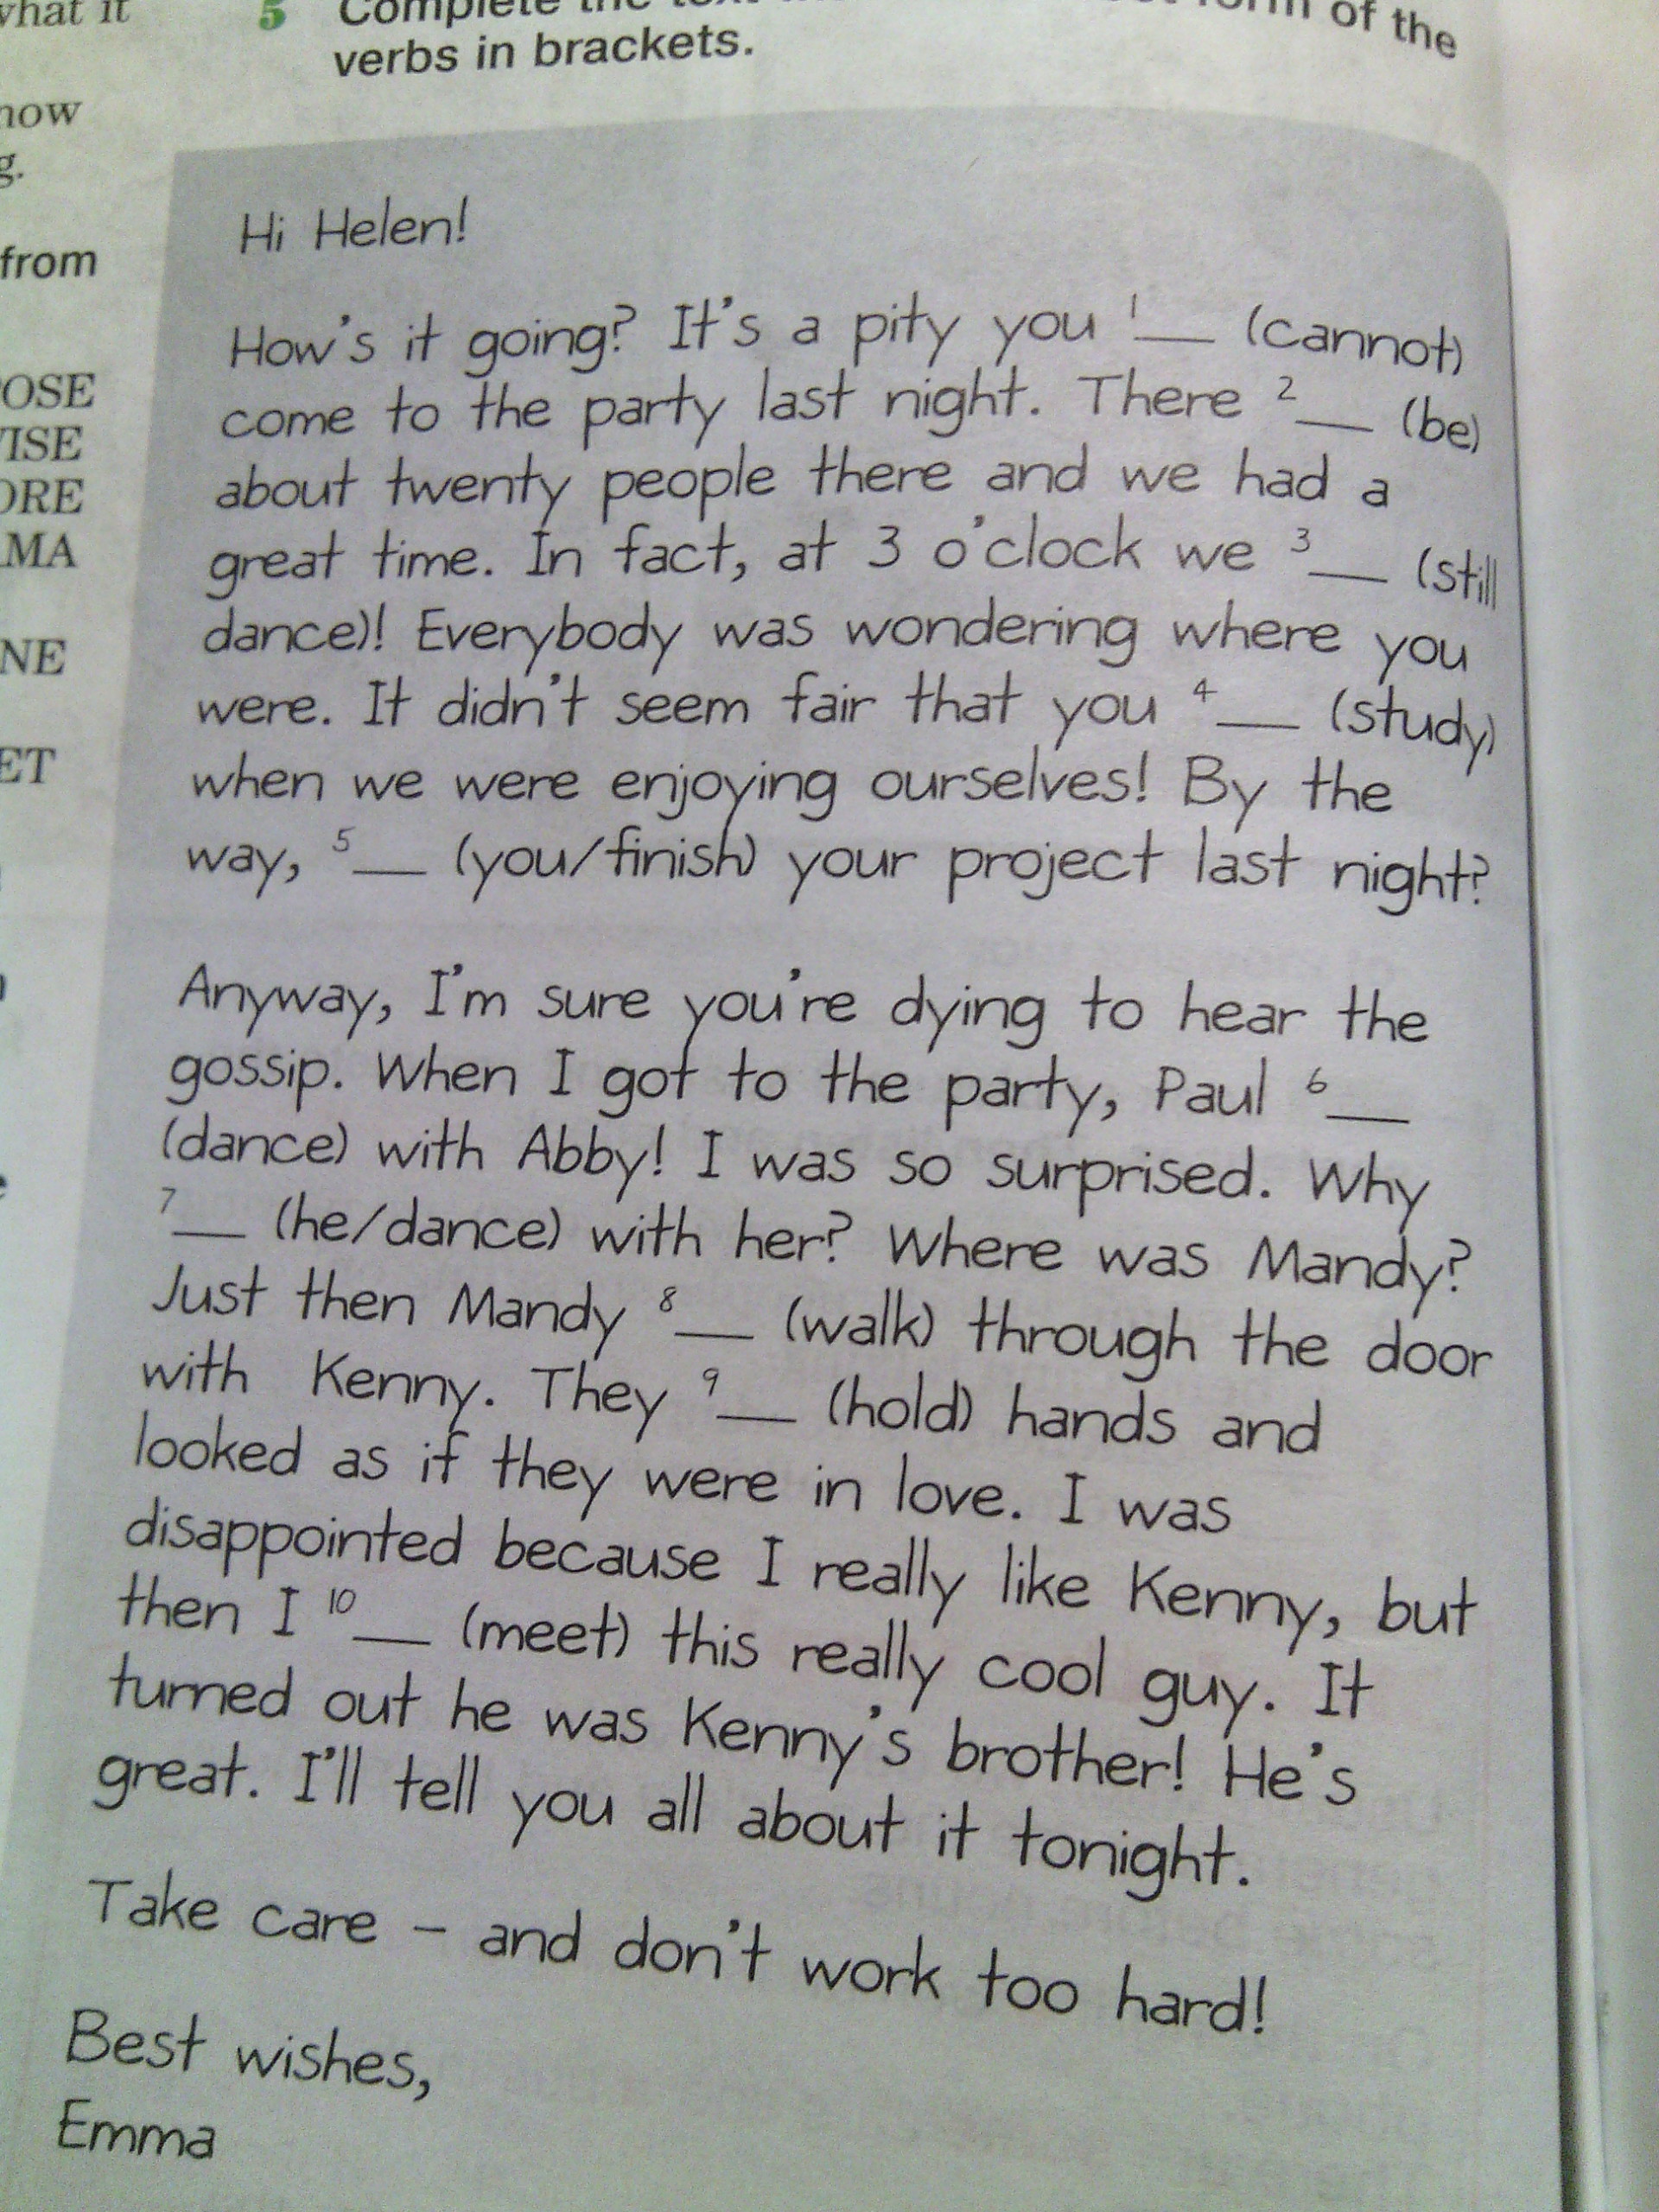 what it
now
g.
from
OSE
ISE
ORE
MA
NE
ET
5 Complete the of the
verbs in brackets.
Hi Helen!
How's it going? It's a pity you 1__ (cannot)
come to the party last night. There 2__ (be)
about twenty people there and we had a
great time. In fact, at 3 o'clock we 3__ (still
dance)! Everybody was wondering where you
were. It didn't seem fair that you 4__ (study)
when we were enjoying ourselves! By the
way, 5__ (you/finish) your project last night?
Anyway, I'm sure you're dying to hear the
gossip. When I got to the party, Paul 6__
(dance) with Abby! I was so surprised. Why
7__ (he/dance) with her? Where was Mandy?
Just then Mandy 8__ (walk) through the door
with Kenny. They 9__ (hold) hands and
looked as if they were in love. I was
disappointed because I really like Kenny, but
then I 10__ (meet) this really cool guy. It
turned out he was Kenny's brother! He's
great. I'll tell you all about it tonight.
Take care – and don't work too hard!
Best wishes,
Emma